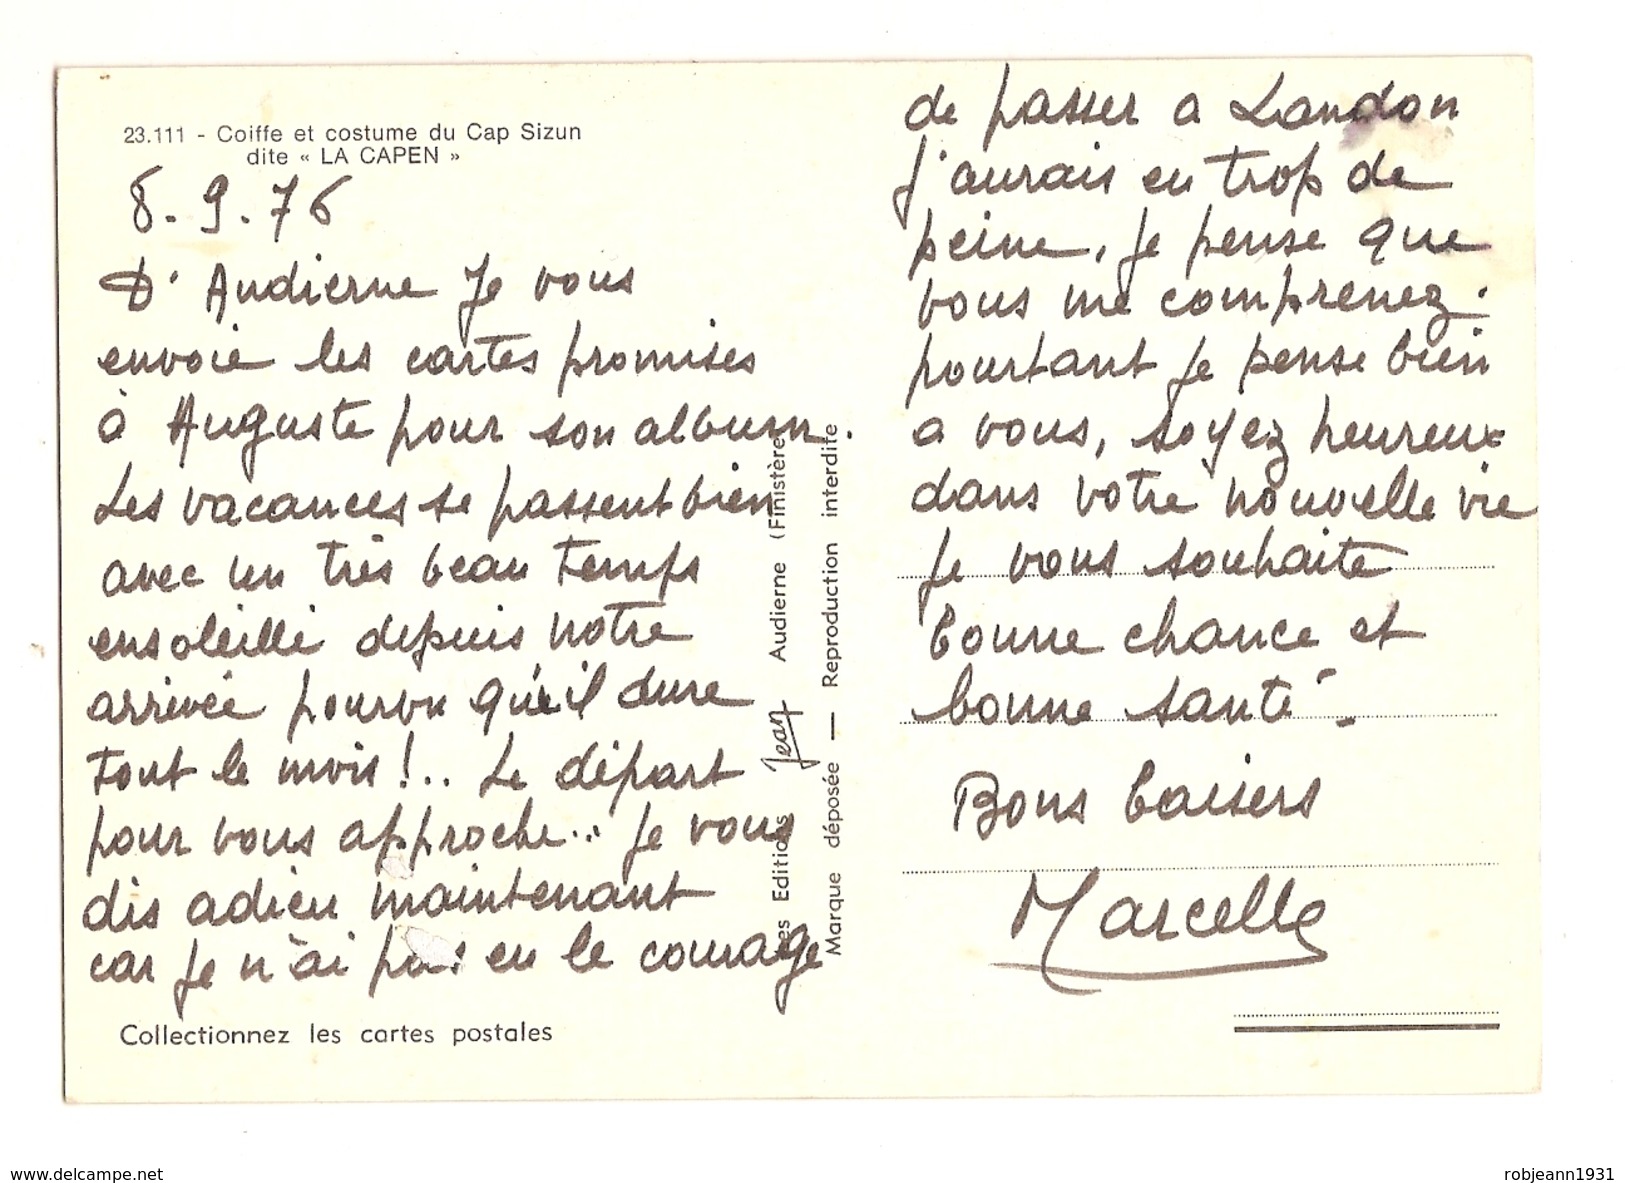 23.111 - Coiffe et costume du Cap Sizun
dite « LA CAPEN »
8.9.76
D'Audierne Je vous
envoie les cartes promises
à Auguste pour son album.
Les vacances se passent bien
avec un très beau temps
ensoleillé depuis notre
arrivée pourvu qu'il dure
tout le mois !.. Le départ
pour vous approche... je vous
dis adieu maintenant
car je n'ai pas eu le courage
Collectionnez les cartes postales
Les Editions Jean Audierne (Finistère)
Marque déposée — Reproduction interdite
de passer a Landon
j'aurais eu trop de
peine, je pense que
vous me comprenez.
pourtant je pense bien
a vous, soyez heureux
dans votre nouvelle vie
Je vous souhaite
bonne chance et
bonne santé.
Bons baisers
Marcelle
www.delcampe.net
robjeann1931